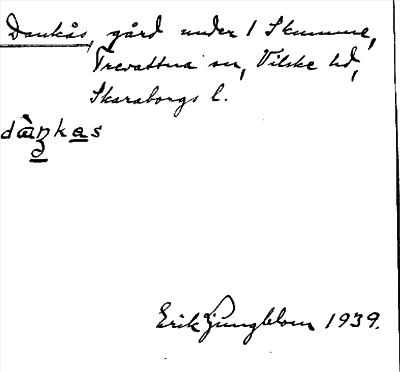 Dankås, gård under 1 Skumme,
Trevattna sn, Vilske hd,
Skaraborgs l.
dàŋkas
Erik Ljungblom 1939.